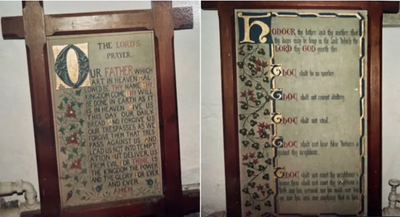 THE LORD'S
PRAYER.
OUR FATHER WHICH
ART IN HEAVEN HAL
LOWED BE THY NAME THY
KINGDOM COME THY WILL
BE DONE IN EARTH AS IT
IS IN HEAVEN GIVE US
THIS DAY OUR DAILY
BREAD AND FORGIVE US
OUR TRESPASSES AS WE
FORGIVE THEM THAT TRES
PASS AGAINST US AND
LEAD US NOT INTO TEMPT
ATION BUT DELIVER US
FROM EVIL FOR THINE IS
THE KINGDOM THE POWER
AND THE GLORY FOR EVER
AND EVER
AMEN
HONOUR thy father and thy mother that
thy days may be long in the land which the
LORD thy GOD giveth thee.
Thou shalt do no murder.
Thou shalt not commit adultery.
Thou shalt not steal.
Thou shalt not bear false witness
against thy neighbour.
Thou shalt not covet thy neighbour's